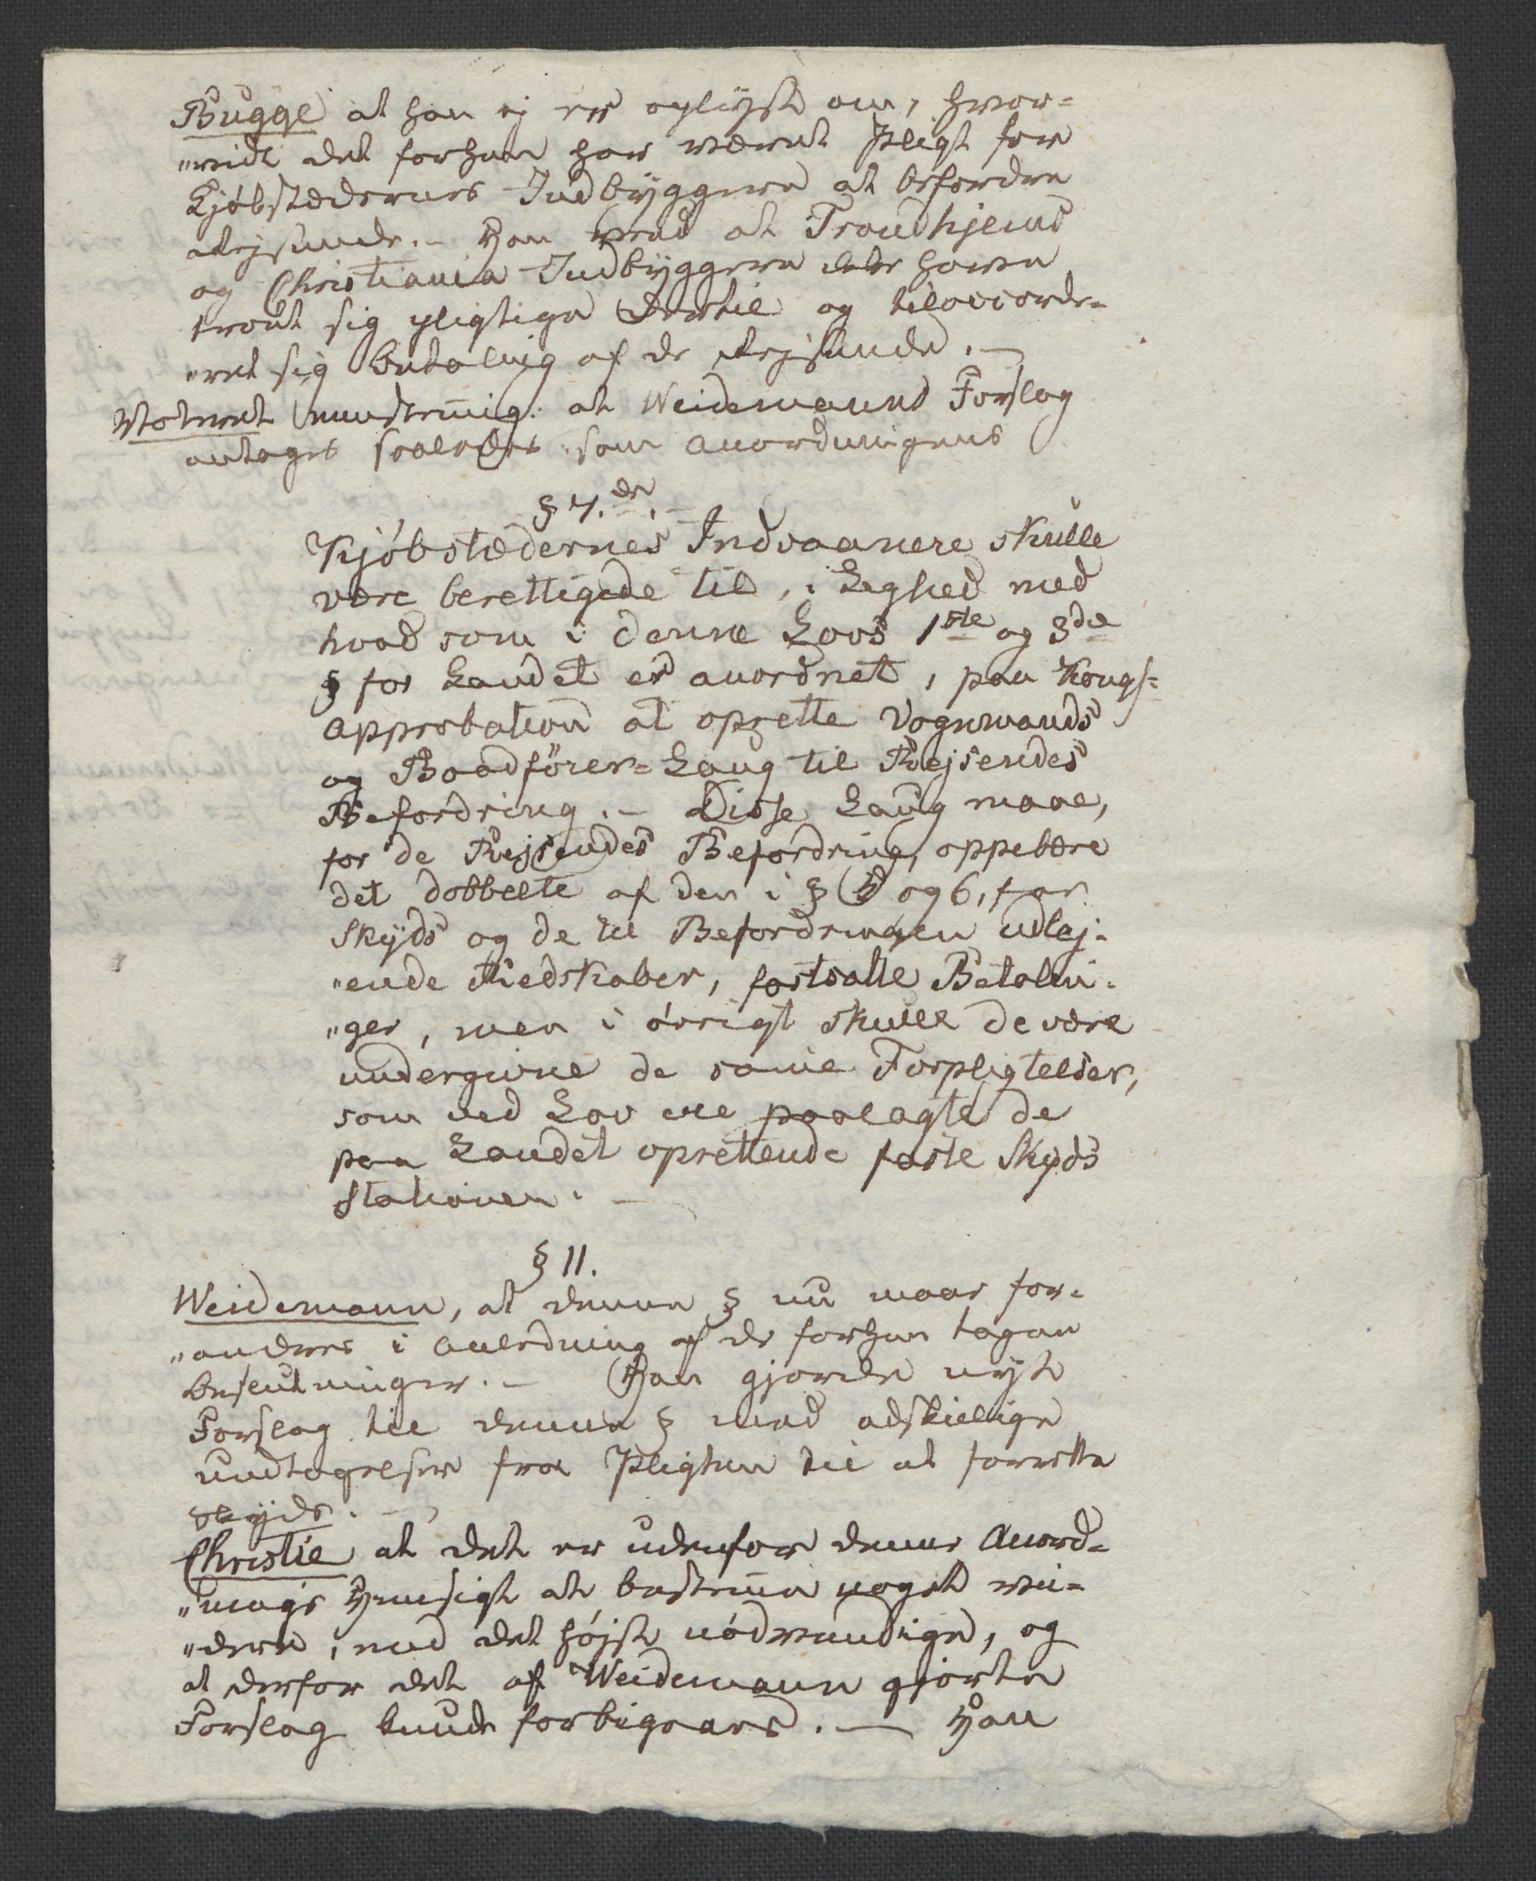 Bugge at han ej er oplyst om, hvor-
"vidt det forhen har været Pligt for
Kjøbstædernes Indbyggere at befordre
Rejsende. — Han veed at Trondhjems
og Christiania Indbyggere ikke have
troet sig pligtige dertil og tilaccorde-
"ret sig betaling af de Rejsende. —
Voteret eenstem̄ig: at Weidemanns Forslag
antages saaledes som Anordningens
§ 7.de. —
Kjøbstædernes Indvaanere skulle
være berettigede til, i Lighed med
hvad som i denne Lovs 1ste og 3de
§ for Landet er anordnet, paa Kongl-
Approbation at oprette Vognmands
og Baadfører-Laug til Rejsendes
Befordring. — Disse Laug maae,
for de Rejsendes Befordring, oppebære
det dobbelte af den i § 5 og 6, for
Skyds og de til Befordringen udlej-
"ende Redskaber, fastsatte Betalin-
"ger, men i øvrigt skulle de være
undergivne de samme Forpligtelser,
som ved Lov ere paalagte de
paa Landet oprettende faste Skyds
stationer. —
§ 11.
Weidemann, at denne § nu maae for-
"andres i Anledning af de forhen tagne
beslutninger. — Han gjorde nyt
Forslag til denne § med adskillige
Undtagelser fra Pligten til at forrette
skyds. —
Christie at det er udenfor denne Anord-
"nings Hensigt at bestem̄e noget vi-
"dere, end det højst nødvendige, og
at derfor det af Weidemann gjorte
Forslag burde forbigaaes. — Han